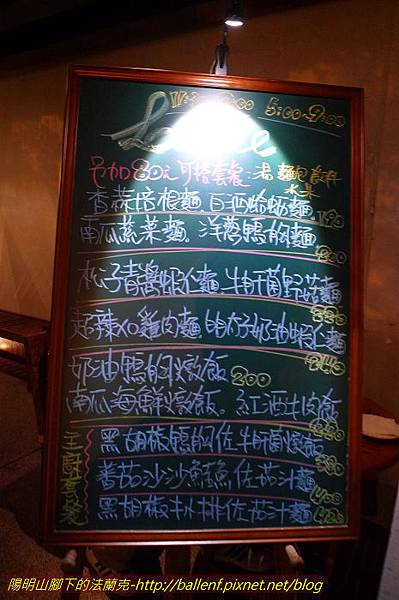 5:00~9:00
另加80元可搭套餐:湯 麵包 飲料
水果
香蒜培根麵. 白酒蛤蜊麵 190
南瓜蔬菜麵. 洋蔥鴨胸麵. 200
松子青醬蝦仁麵. 牛肝菌野菇麵 220
超辣XO雞肉麵. 明太子奶油蝦仁麵 240
奶油鴨胸燉飯 200
南瓜海鮮燉飯. 紅酒牛肉飯
主廚套餐
黑胡椒鴨胸佐牛肝菌燉飯
蕃茄沙沙鱸魚佐茄汁麵 400
黑胡椒牛排佐茄汁麵 420
陽明山腳下的法蘭克-http://ballenf.pixnet.net/blog